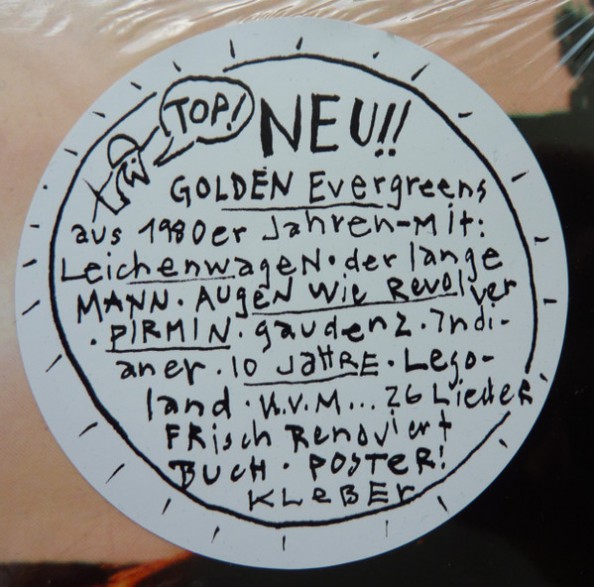 TOP!
NEU!!
GOLDEN Evergreens
aus 1980er Jahren-Mit:
LeichenwageN·der lange
MANN·AUgEN Wie Revolver
·PIRMIN·gaudenz·Indi-
aner·10 JAHRE·Lego-
land·U.V.M... 26 Lieder
FRisch Renoviert
BUCH·POSTER!
KLeBER